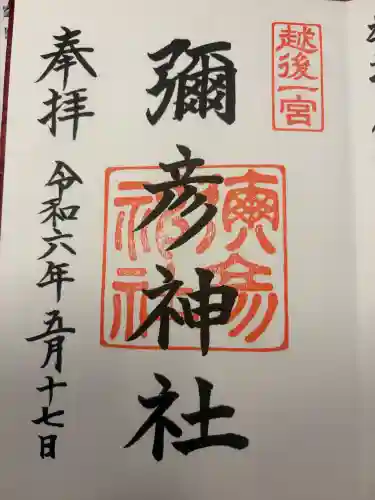 越後一宮
彌彦神社
奉拝
令和六年五月十七日